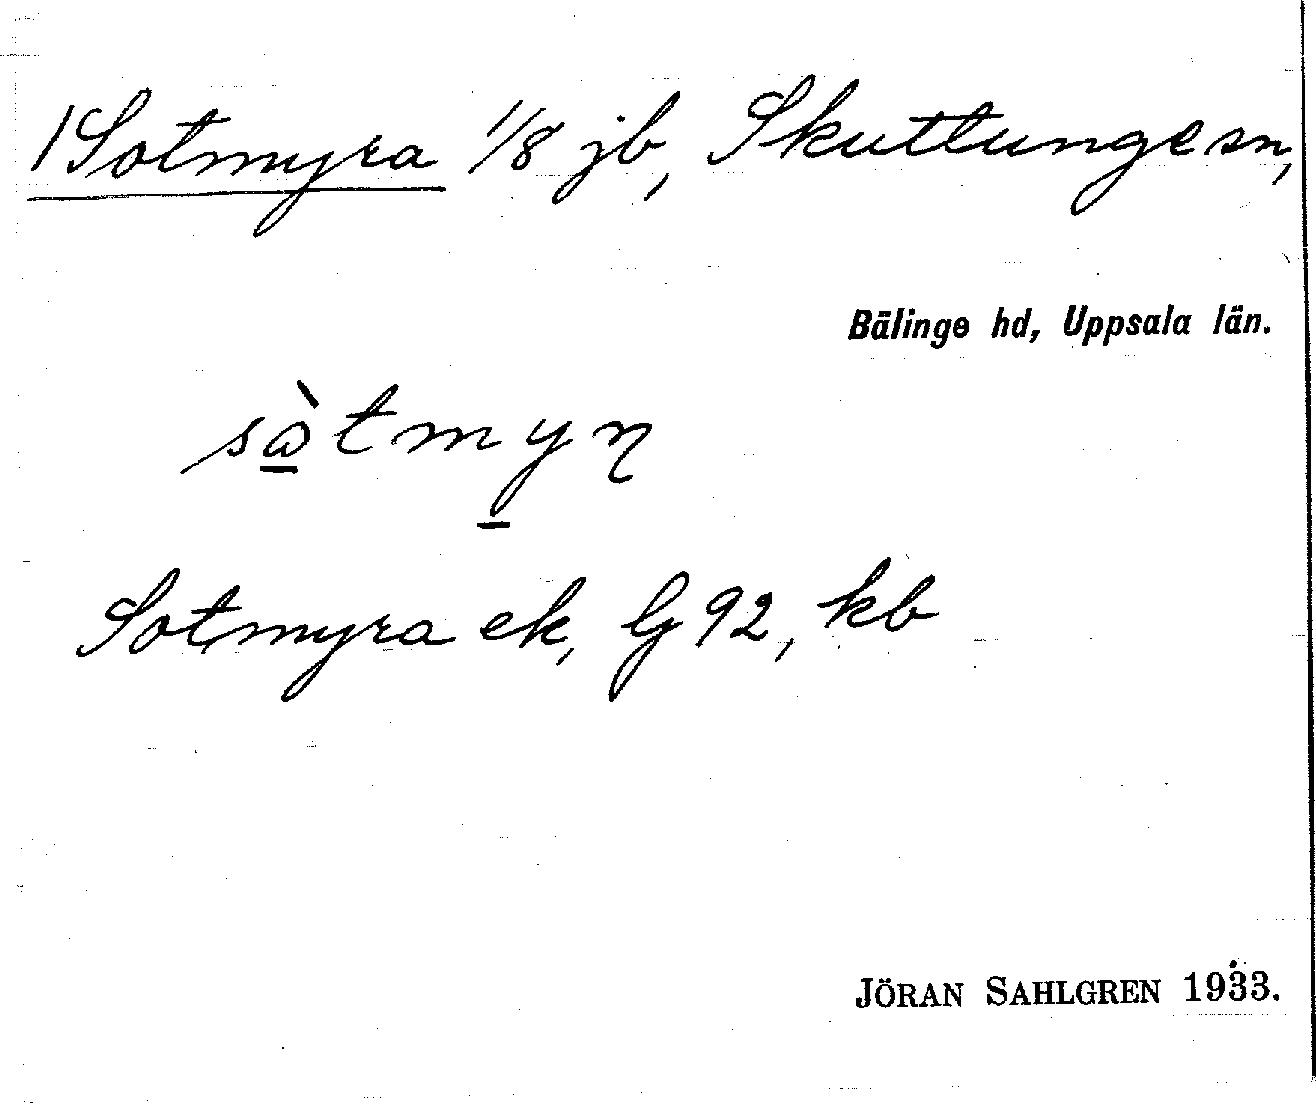 1 Sotmyra 1/8 jb, Skuttunge sn,
Bälinge hd, Uppsala län.
sὼ̱tmy̱ɳ
Sotmyra ek, G 92, kb
JÖRAN SAHLGREN 1933.